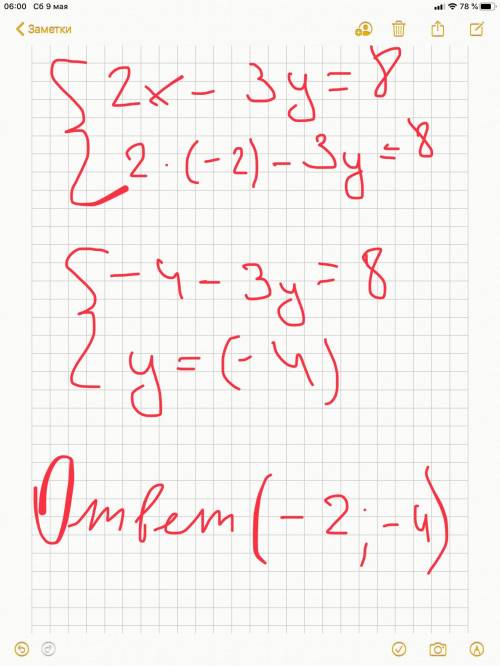 06:00 Сб 9 мая 78 %
Заметки
2x - 3y = 8
2 · (-2) - 3y = 8
-4 - 3y = 8
y = (-4)
Ответ (-2; -4)